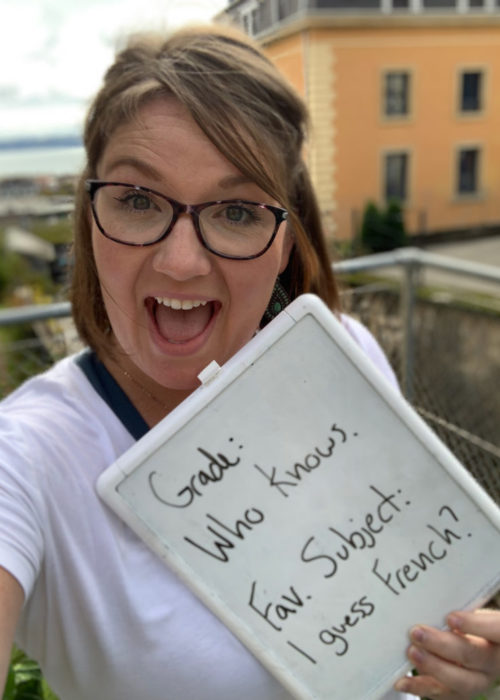 Grade:
Who Knows.
Fav. Subject:
I guess French?